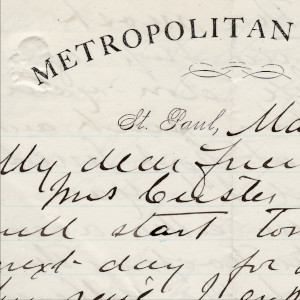 METROPOLITAN
St. Paul, Ma
My dear Frie
Mrs Custer
will start Tom
next day for